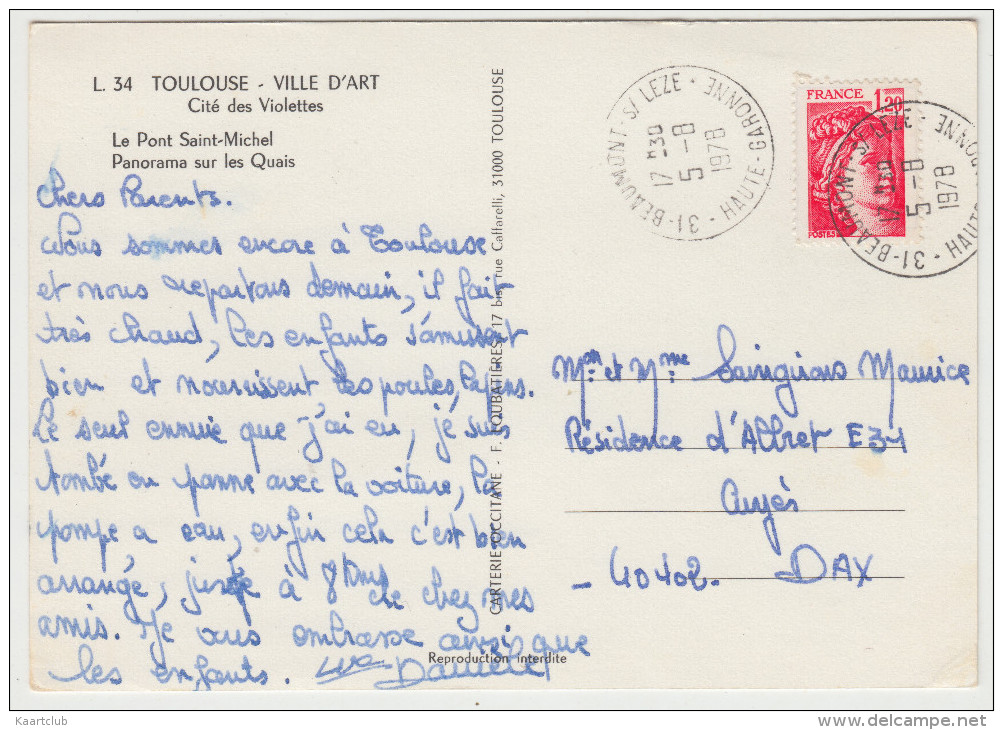 L. 34 TOULOUSE - VILLE D'ART
Cité des Violettes
Le Pont Saint-Michel
Panorama sur les Quais
Chers Parents.
Nous sommes encore à Toulouse
et nous repartons demain, il fait
très chaud, les enfants s'amusent
bien et nourrissent les poules, lapins.
Le seul ennuie que j'ai eu, je suis
tombé en panne avec la voiture, la
pompe a eau, enfin cela c'est bien
arrangé, juste à 8 kms de chez mes
amis. Je vous embrasse ainsi que
les enfants.
CARTERIE OCCITANE - F. LOUBATIERES, 17 bis, rue Caffarelli, 31000 TOULOUSE
Reproduction interdite
31-BEAUMONT S/ LEZE - HAUTE-GARONNE
17 H30
5 - 8
1978
FRANCE 1,20
POSTES
31-BEAUMONT S/ LEZE - HAUTE-GARONNE
17 H30
5 - 8
1978
Mr et Mme Saingirons Maurice
Résidence d'Albret E34
40402. DAX
Kaartclub
delcampe.net